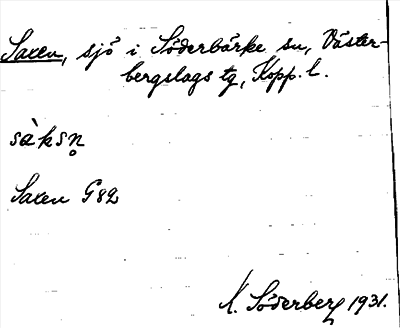 Saxen, sjö i Söderbärke sn, Väster-
bergslags tg, Kopp. l.
sàksn̥
Saxen G82
K. Söderberg 1931.